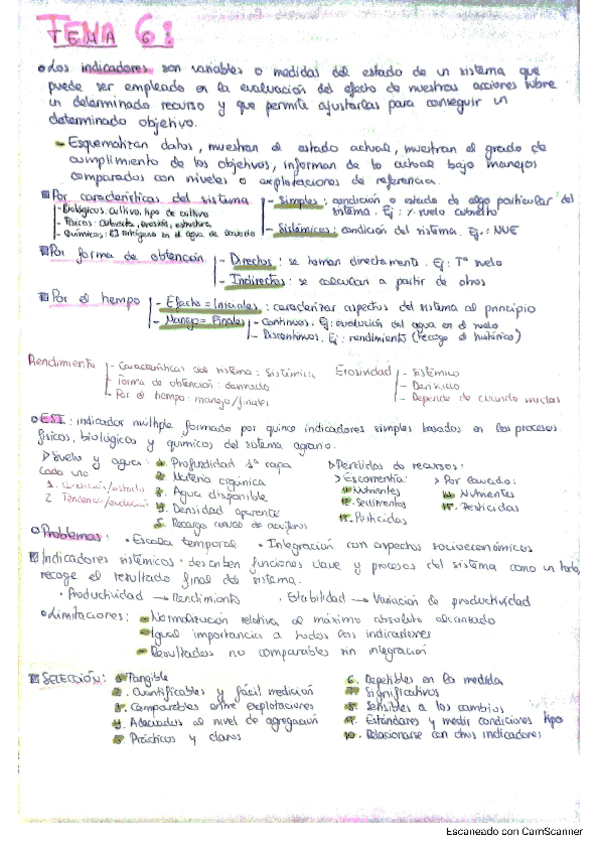 TEMA 6:
Los indicadores son variables o medidas del estado de un sistema que
puede ser empleado en la evaluación del efecto de nuestras acciones sobre
un determinado recurso y que permita ajustarlas para conseguir un
determinado objetivo.
- Esquematizan datos, muestran el estado actual, muestran el grado de
cumplimiento de los objetivos, informan de lo actual bajo manejos
comparados con niveles o explotaciones de referencia.
Por características del sistema
- Biológicos: cultivo, tipo de cultivo
- Físicos: cubierta, erosión, estructura
- Químicos: nitrógeno en el agua de
- Simples: condición o estado de algo particular del
sistema. Ej: % suelo cubierto
- Sistémicos: condición del sistema. Ej.: NUE
Por forma de obtención
- Directos: se toman directamente. Ej: Tª suelo
- Indirectos: se calculan a partir de otros
Por el tiempo
- Efecto = Iniciales: caracterizar aspectos del sistema al principio
- Manejo = Finales
- Continuos. Ej: evolución del agua en el suelo
- Discontinuos. Ej: rendimiento (recoge el histórico)
Rendimiento
- Características del sistema: sistémico
- Forma de obtención: derivado
- Por el tiempo: manejo/finales
Erosividad
- Sistémico
- Depende de cuando
ESI: indicador múltiple formado por quince indicadores simples basados en los procesos
físicos, biológicos y químicos del sistema agrario.
Suelo y agua:
Cada uno
1. Condición/estado
2 Tendencia/evolución
1. Profundidad 1ª capa
2. Materia orgánica
3. Agua disponible
4. Densidad aparente
5. Recarga
Pérdidas de recursos:
> Escorrentía:
Nutrientes
Sedimentos
Pesticidas
> Por lavado:
Nutrientes
Pesticidas
Problemas: • Escala temporal • Integración con aspectos socioeconómicos
Indicadores sistémicos: describen funciones clave y procesos del sistema como un todo,
recoge el resultado final del sistema.
• Productividad → Rendimiento • Estabilidad → Variación de productividad
Limitaciones: - Normalización relativa al máximo absoluto alcanzado
- Igual importancia a todos los indicadores
- Resultados no comparables sin integración
SELECCIÓN: 1. Tangible
2. Cuantificables y fácil medición
3. Comparables entre explotaciones
4. Adecuados al nivel de agregación
5. Prácticos y claros
6. Repetibles en la medida
7. Significativos
8. Sensibles a los cambios
9. Estándares y medir condiciones tipo
10. Relacionarse con otros indicadores
Escaneado con CamScanner